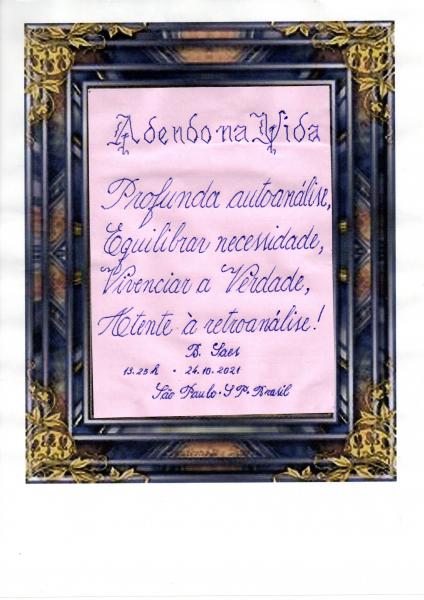 Adendo na Vida
Profunda autoanálise,
Equilibrar necessidade,
Vivenciar a Verdade,
Atente à retroanálise!
B. Saes
13.25h • 24.10.2021
São Paulo • SP • Brasil